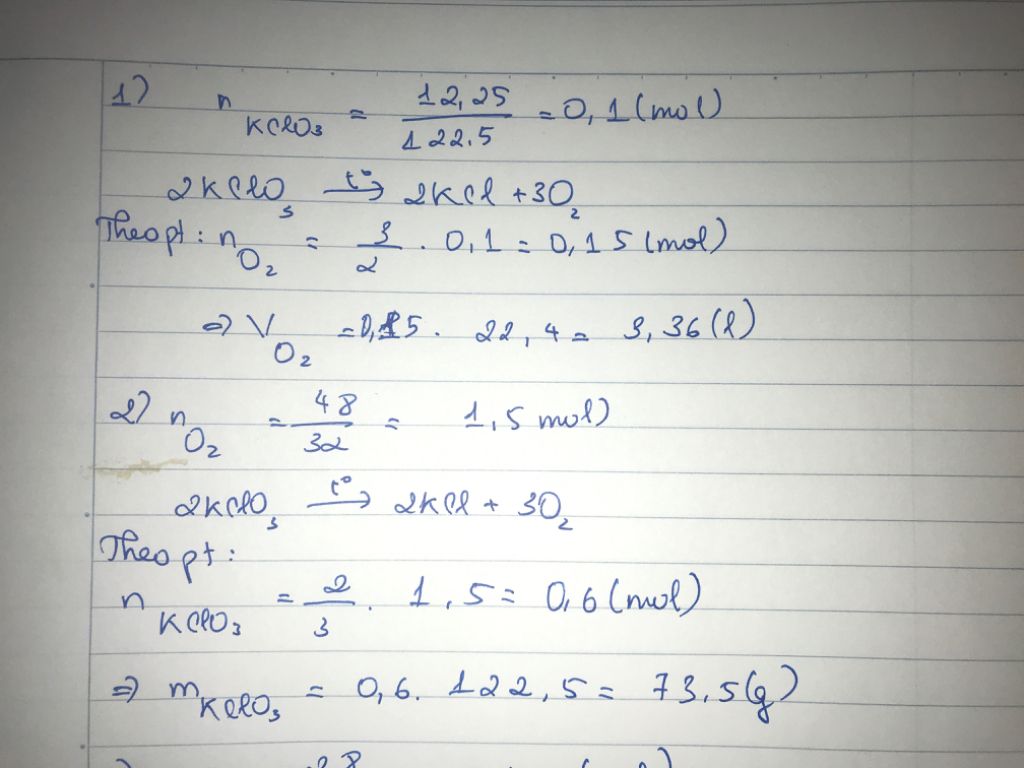 1) n KClO3 = 12,25 / 122.5 = 0,1 (mol)
2KClO3 t° → 2KCl + 3O2
Theo pt : n O2 = 3/2 . 0,1 = 0,15 (mol)
⇒ V O2 = 0,15 . 22,4 = 3,36 (l)
2) n O2 = 48/32 = 1,5 mol)
2KClO3 t° → 2KCl + 3O2
Theo pt :
n KClO3 = 2/3 . 1,5 = 0,6 (mol)
⇒ m KClO3 = 0,6 . 122,5 = 73,5 (g)